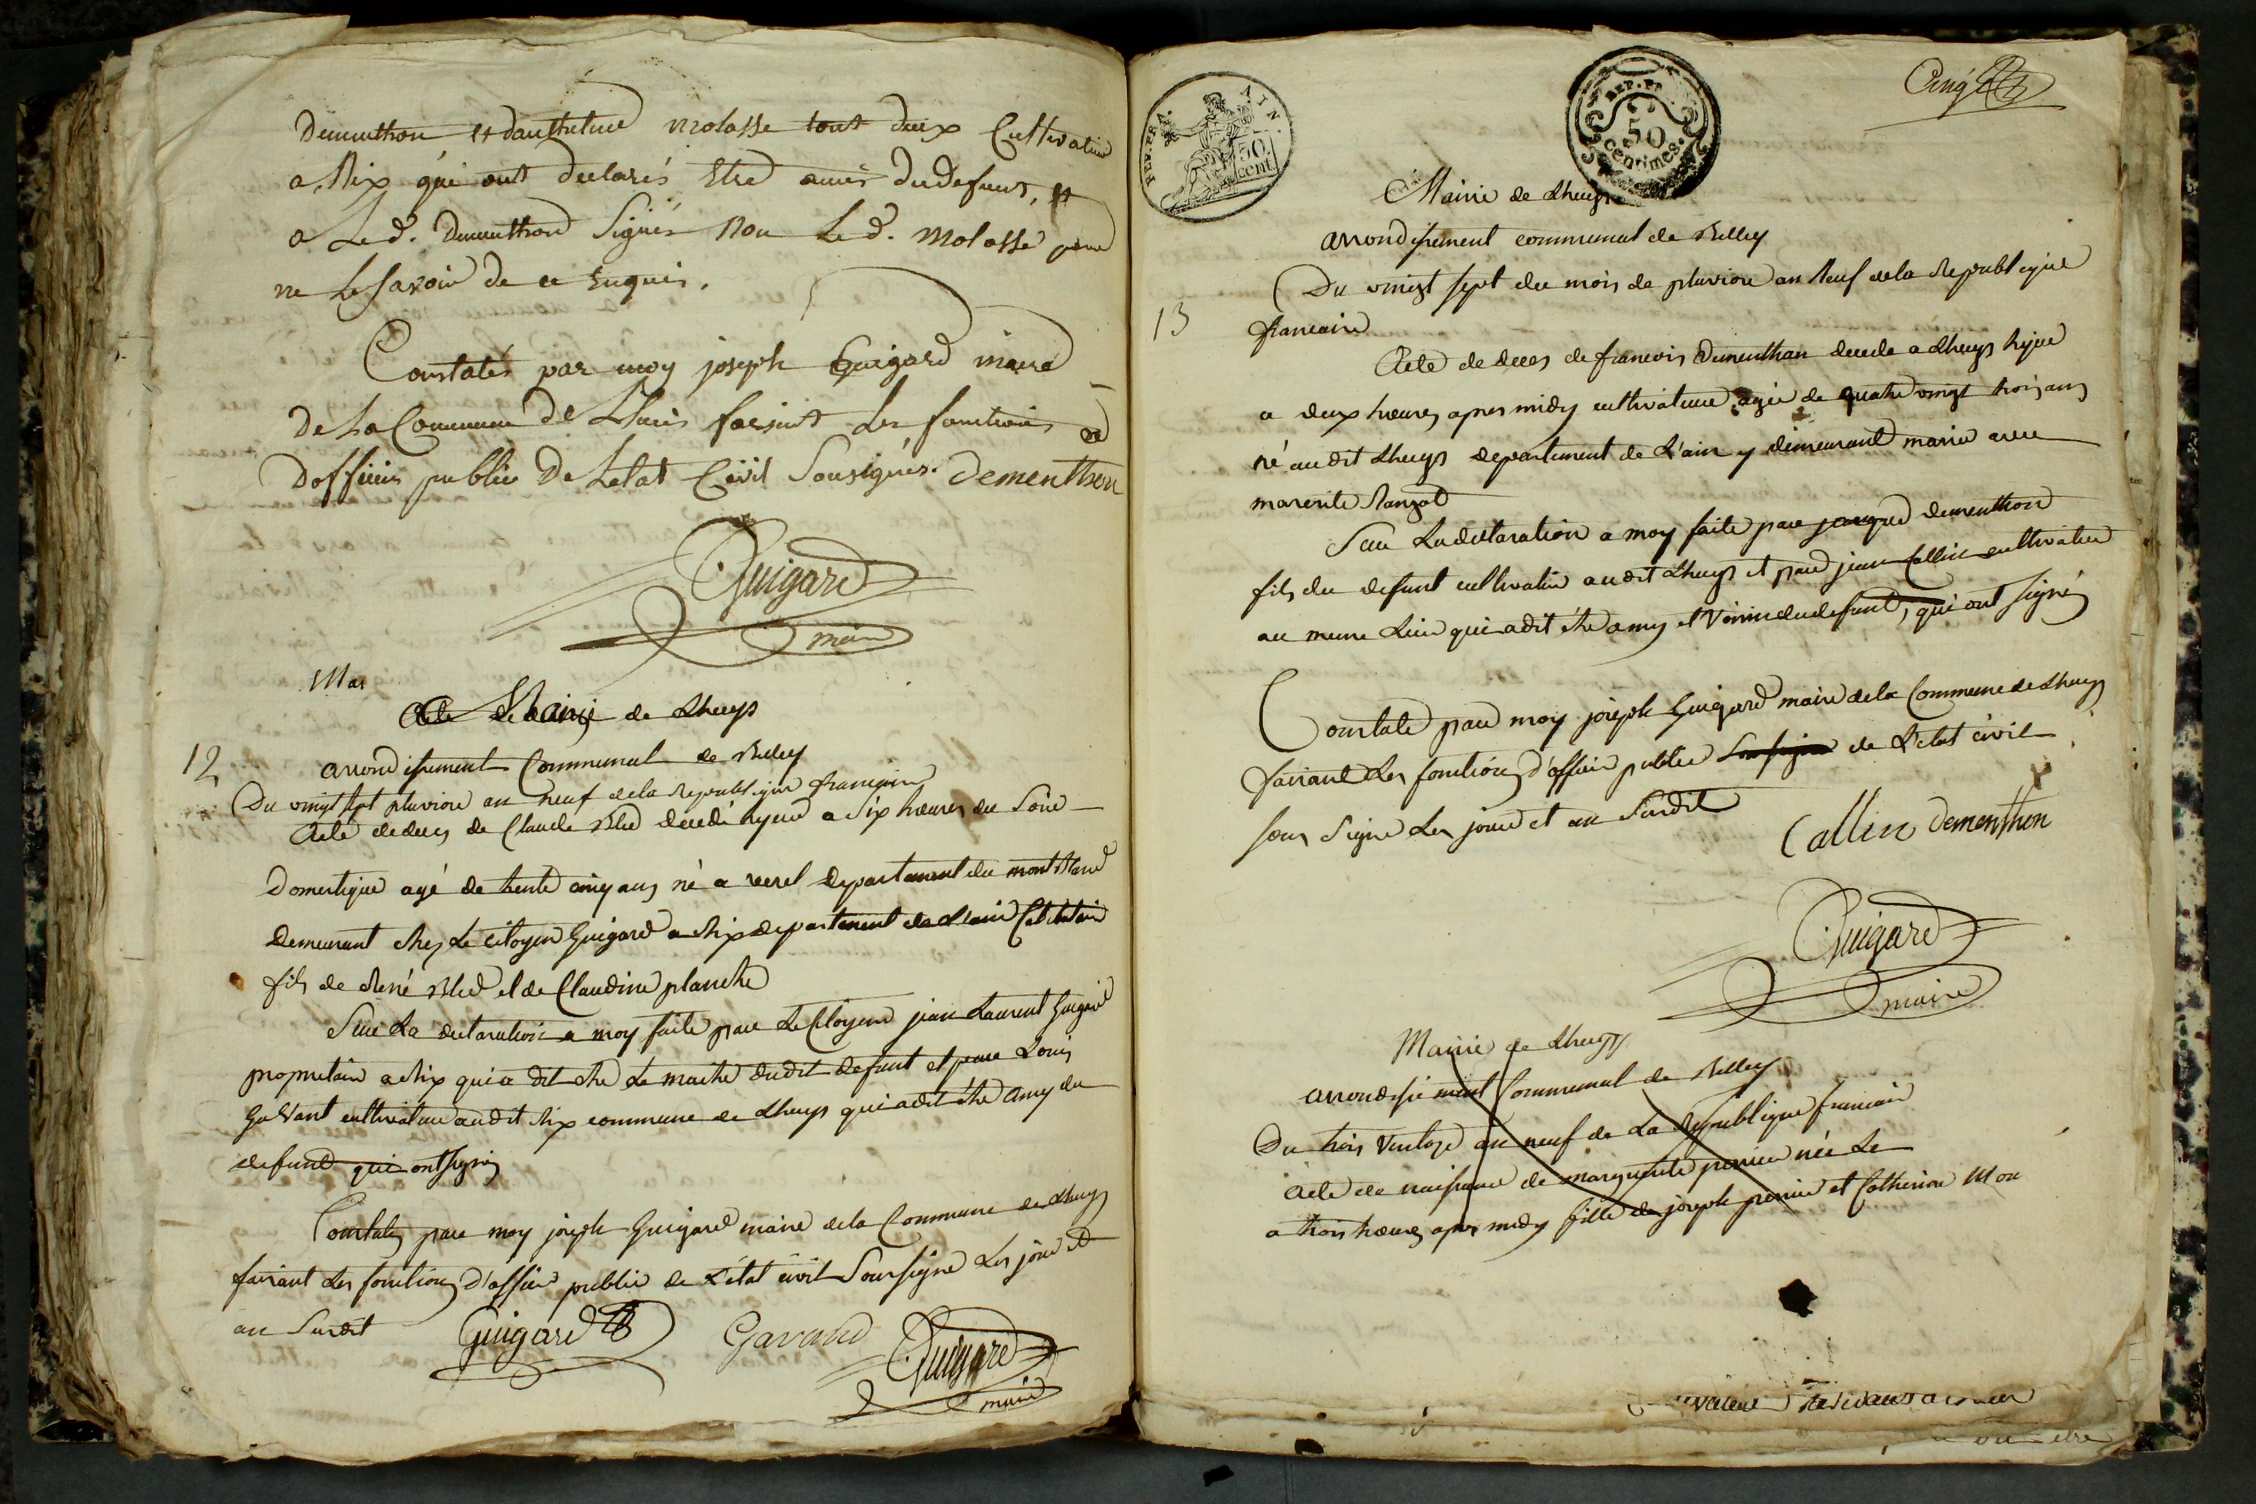 Dementhon et danthelme molasse tout deux Cultivateur
a Rix qui ont declarés Etre amis du defunt, et
a Led. Dementhon Signés Non Le d. Molasse pour
ne Le savoir de ce Enquis.
Constatés par moy joseph Guigard maire
De La Commune de Lhuis faisant Les fonctions
Dofficier public De Letat Civil Sousignés. Dementhon
Guigard
maire
Mar
Mairie de Lhuys
12
arrondissement Communal de Belley
Du vingt sept pluviose an neuf de la Republique francaise
Acte de deces de Claude Bled decedé hyere a Six heures du Soir
Domestique agé de trente cinq ans né a verel departement du mont Blanc
Demeurant chez Le citoyen Guigard a Rix departement de Lain Celibataire
fils de René Bled et de Claudine planche
Sur La declaration a moy faite par Le Citoyen jean Laurent Guigard
proprietaire a Rix qui a dit etre Le maitre dudit defunt et par Louis
Gavant cultivateur audit Rix commune de Lhuys qui a dit étre amy du
defunt qui ont signés
Constatés par moy joseph Guigard maire de la Commune de Lhuys
faisant Les fonctions d'officier public de L'état civil Soussigne Les jour et
an Susdit
Guigard Gavand Guigard
maire
AIN.
50
cent.
REP. FR
50
centimes.
Cinq
Mairie de Lhuys
arrondissement communal de Belley
Du vingt sept du mois de pluviose an Neuf de la Republique
13
francaise
Acte de deces de francois Dementhon decede a Lhuys hyere
a deux heures apres midy cultivateur agée de quatre vingt trois ans
né audit Lhuys departement de L'ain y demeurant marié avec
marerite
Sur La declaration a moy faite par jacques dementhon
fils du defunt cultivateur audit Lhuys et par jean Callin cultivateur
au meme Lieu qui a dit étre amy et Voisin du defunt, qui ont signé
Constate par moy joseph Guigard maire de la Commune de Lhuys
faisant Les fonctions d'officier public Soussigne de L'etat civil
sous Signe Les jour et an Susdit
Callin Dementhon
Guigard
maire
Mairie de Lhuys
arrondissement Communal de Belley
Du trois Ventose an neuf de La Republique francaise
Acte de naissance de marguerite née Le
a trois heures apres midy fille de joseph et Catherine Mou